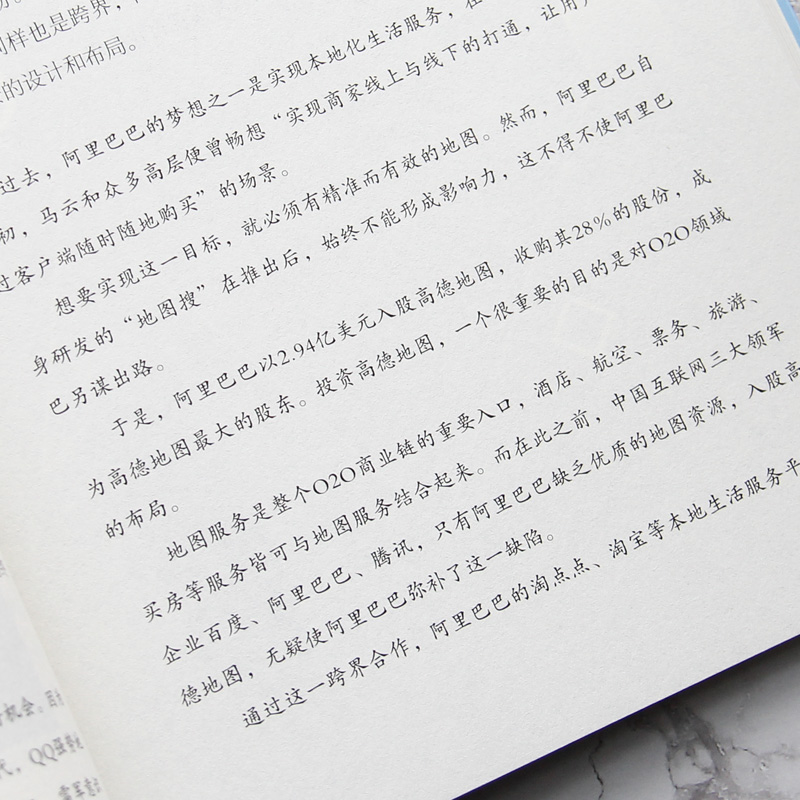 同样也是跨界，
的设计和布局。
过去，阿里巴巴的梦想之一是实现本地化生活服务，在
初，马云和众多高层便曾畅想“实现商家线上与线下的打通，让用
过客户端随时随地购买”的场景。
想要实现这一目标，就必须有精准而有效的地图。然而，阿里巴巴自
身研发的“地图搜”在推出后，始终不能形成影响力，这不得不使阿里巴
巴另谋出路。
于是，阿里巴巴以2.94亿美元入股高德地图，收购其28%的股份，成
为高德地图最大的股东。投资高德地图，一个很重要的目的是对O2O领域
的布局。
地图服务是整个O2O商业链的重要入口，酒店、航空、票务、旅游、
买房等服务皆可与地图服务结合起来。而在此之前，中国互联网三大领军
企业百度、阿里巴巴、腾讯，只有阿里巴巴缺乏优质的地图资源，入股高
德地图，无疑使阿里巴巴弥补了这一缺陷。
通过这一跨界合作，阿里巴巴的淘点点、淘宝等本地生活服务平
机会。
代，QQ